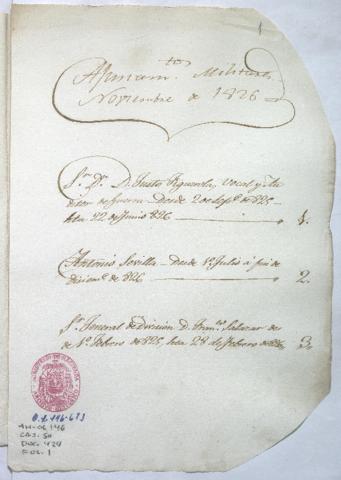 1
Ajustam.tos Militares
Noviembre de 1826
S.or D.r D. Justo Figuerola, Vocal y Au
ditor de Guerra - Desde 2 de Sep.e de 825,
hta 22 de Junio 826 1.
Antonio Sevilla - Desde 1.o Julio á fin de
Diciem.e de 826 2.
S.or Jeneral de Division D. Juan Salazar des
de 1.o Febrero de 825, hta 28 de Febrero de 826 3.
O.L. 146-673
AH-OL 146
CAJ. 50
DOC. 424
FOL. 1